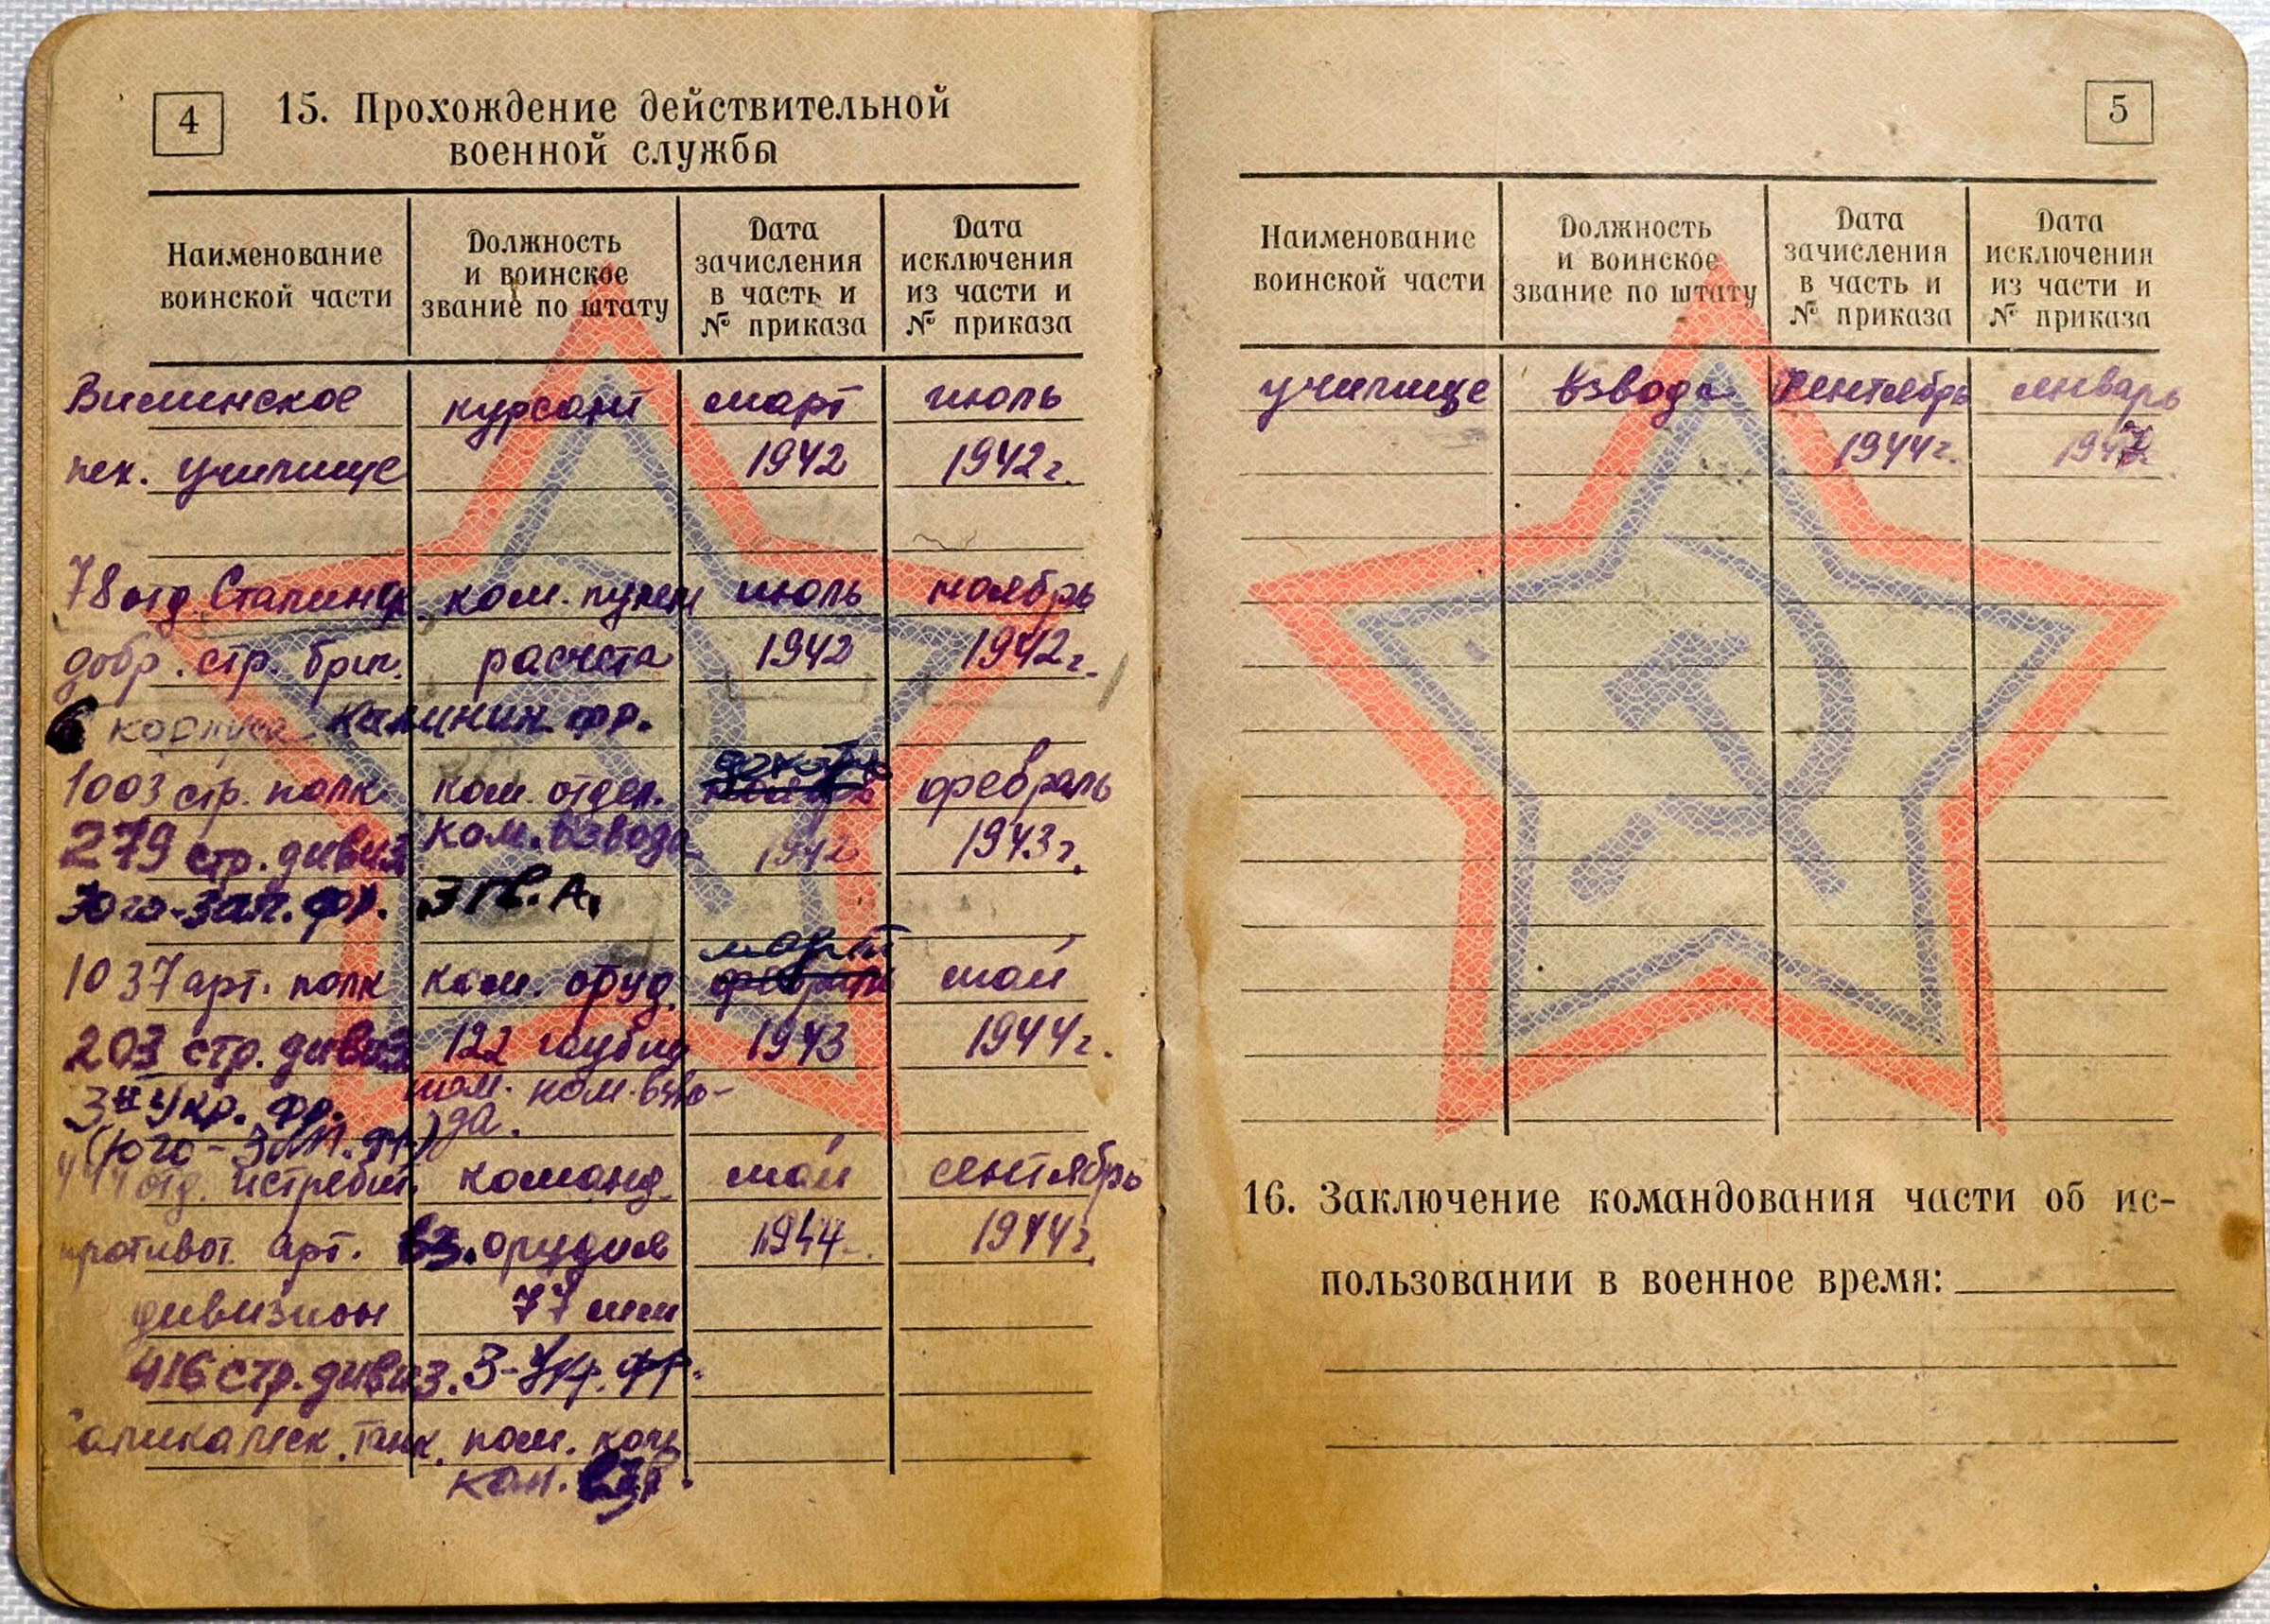 4
15. Прохождение действительной
военной службы
Наименование воинской части
Должность и воинское звание по штату
Дата зачисления в часть и № приказа
Дата исключения из части и № приказа
курсант март июль
пех. училище 1942 1942 г.
78 отд. Сталинск. ком. пулем июль ноябрь
добр. стр. бриг. расчета 1942 1942 г.
6 корпуса Калинин. фр.
1003 стр. полк ком. отдел. февраль
279 стр. дивиз ком. взвода 1942 1943 г.
Юго-Зап. фр. 3 Гв. А.
март
1037 арт. полк ком. оруд. февраль май
203 стр. дивиз 122 1943 1944 г.
3й Укр. фр. пом. ком. взво-
(Юго-Зап. фр.) да.
отд. истребит. команд. май сентябрь
противот. арт. вз. орудия 1944 1944 г.
дивизион 77 мм
416 стр. дивиз. 3-Укр. фр.
танк. пом.
ком. взв.
5
Наименование воинской части
Должность и воинское звание по штату
Дата зачисления в часть и № приказа
Дата исключения из части и № приказа
училище взвода сентябрь январь
1944 г.
16. Заключение командования части об ис-
пользовании в военное время: